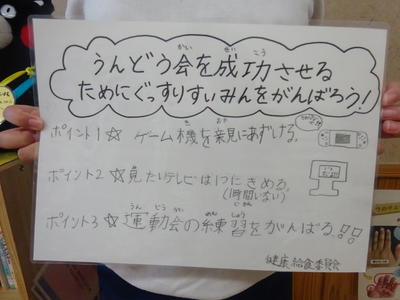 うんどう会を成功させる
ためにぐっすりすいみんをがんばろう!
ポイント1☆ ゲーム機を親にあずける。
ポイント2 ☆見たいテレビは1つにきめる。
(1時間いない)
ポイント3☆運動会の練習をがんばる!!
健康給食委員会